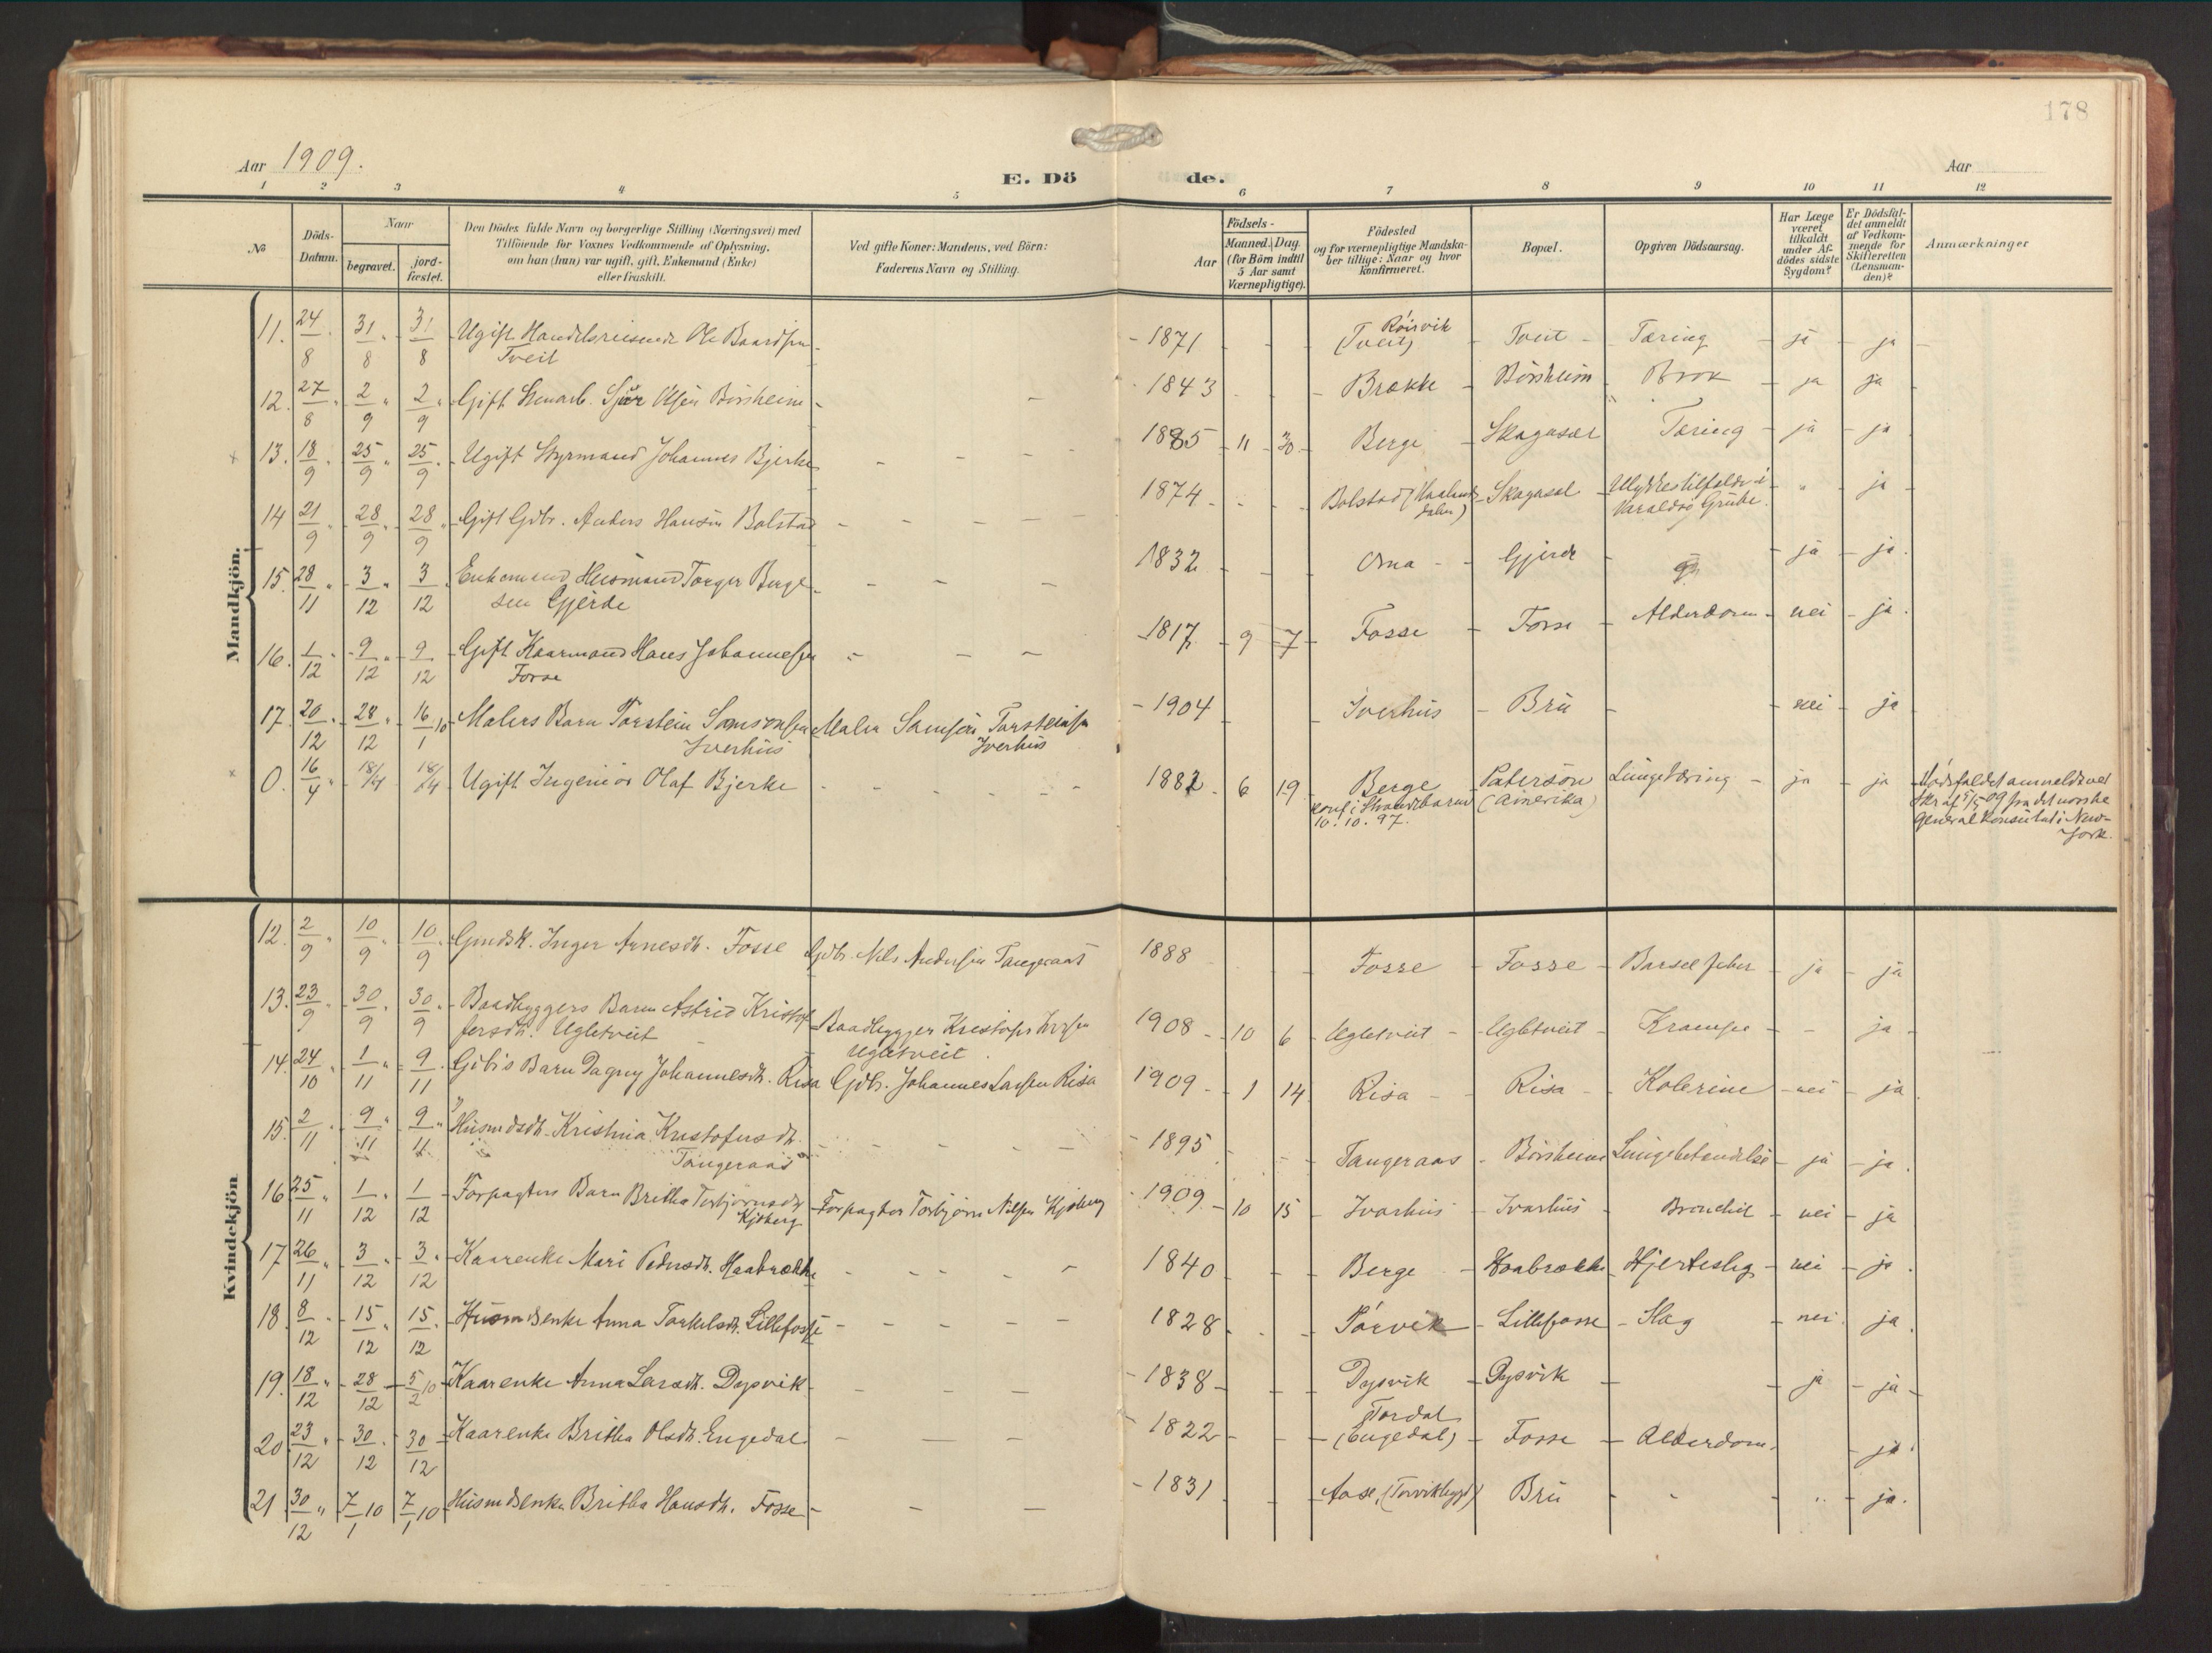 178
Aar 1909.
E. Dö
de.
Aar
1 2 3 4 5 6 7 8 9 10 11 12
No
Döds-
Datum.
Naar
begravet.
jord-
fæstet.
Den Dödes fulde Navn og borgerlige Stilling (Næringsvei) med
Tilföiende for Voxnes Vedkommende af Oplysning,
om han (hun) var ugift, gift, Enkemand (Enke)
eller fraskilt.
Ved gifte Koner: Mandens, ved Börn:
Faderens Navn og Stilling.
Födsels-
Aar
Maaned. Dag.
(for Börn indtil
5 Aar samt
Værnepligtige).
Födested
og for værnepligtige Mandska-
ber tillige: Naar og hvor
konfirmeret.
Bopæl.
Opgiven Dödsaarsag.
Har Læge
været
tilkaldt
under Af-
dödes sidste
Sygdom?
Er Dödsfal-
det anmeldt
af Vedkom-
mende for
Skifteretten
(Lensman-
den)?
Anmærkninger
Mandkjön.
11. 24/8 31/8 31/8 Ugift Handelsreisende Ole Baardsen Tveit - 1871 Röisvik (Tveit) Tveit Tæring ja ja
12. 27/8 2/9 2/9 Gift Stenarb. Sjur Olsen Börsheim 1843 Brække Börsheim Brok ja ja
13. 18/9 25/9 25/9 Ugift Styrmand Johannes Bjerke 1885 11 30 Berge Skagasæt Tæring ja ja
14 21/9 28/9 28/9 Gift Gdbr. Anders Hansen Bolstad 1874 Bolstad Skagasæl Ulykkestilfælde i Varaldsö Grube. " ja
15. 28/11 3/12 3/12 Enkemand Husmand Torger Berge-
sen Gjerde 1832 Oma Gjerde ja ja
16. 1/12 9/12 9/12 Gift Kaarmand Hans Johannessen
Fosse 1817 9 7 Fosse Fosse Alderdom nei ja
17. 20/12 28/12 16/1 10 Malers Barn Torstein Samsonsen
Iverhus Maler Samson Torsteinsen
Iverhus 1904 Iverhus Bru nei ja
0. 16/4 18/4 18/4 Ugift Ingeniör Olaf Bjerke 1882 6 19 Berge
konf. i Strandebarm
10.10.97. Paterson
(Amerika) Lungetæring ja ja Dödsfaldet anmeldt ved
Skr. af 5/5 09 fra det norske
General Konsulat i New-
York.
Kvindekjön
12. 2/9 10/9 10/9 Inger Arnesdt. Fosse Gdbr. Nils Andersen Tangeraas 1888 Fosse Fosse Barselfeber ja ja
13. 23/9 30/9 30/9 Baadbyggers Barn Astrid Kristof-
fersdt. Ugletveit Baadbygger Kristofer
Ugletveit 1908 10 6 Ugletveit Ugletveit Krampe - ja
14. 24/10 1/11 9/11 Gdbr's Barn Dagny Johannesdt. Risa Gdbr. Johannes Larsen Risa 1909 1 14 Risa Risa Kolerine nei ja
15. 2/11 9/11 9/11 Husmdsdt. Kristina Kristofersdt.
Tangeraas 1895 Tangeraas Börsheim Lungebetændelse ja ja
16 25/11 1/12 1/12 Forpagters Barn Britha Torbjörnsdt.
Kjöberg Forpagter Torbjörn Nilsen Kjöberg 1909 10 15 Ivarhus Ivarhus Bronchit nei ja
17 26/11 3/12 3/12 Kaarenke Mari Pedersdt. Haabrække 1840 Berge Haabrække Hjerteslag nei ja
18. 8/12 15/12 15/12 Husmdsenke Anna Torkelsdt. Lillefosse 1828 Lillefosse Slag nei ja
19. 18/12 28/12 5/2 10 Kaarenke Anna Larsdt. Dysvik 1838 Dysvik Dysvik ja ja
20. 23/12 30/12 30/12 Kaarenke Britha Olsdt. Engedal 1822 Tordal
(Engedal) Fosse Alderdom ja
21. 30/12 7/1 10 7/1 10 Husmdsenke Britha Hansdt. Fosse 1831 Aase, (Torvikbygd) Bru - " ja.